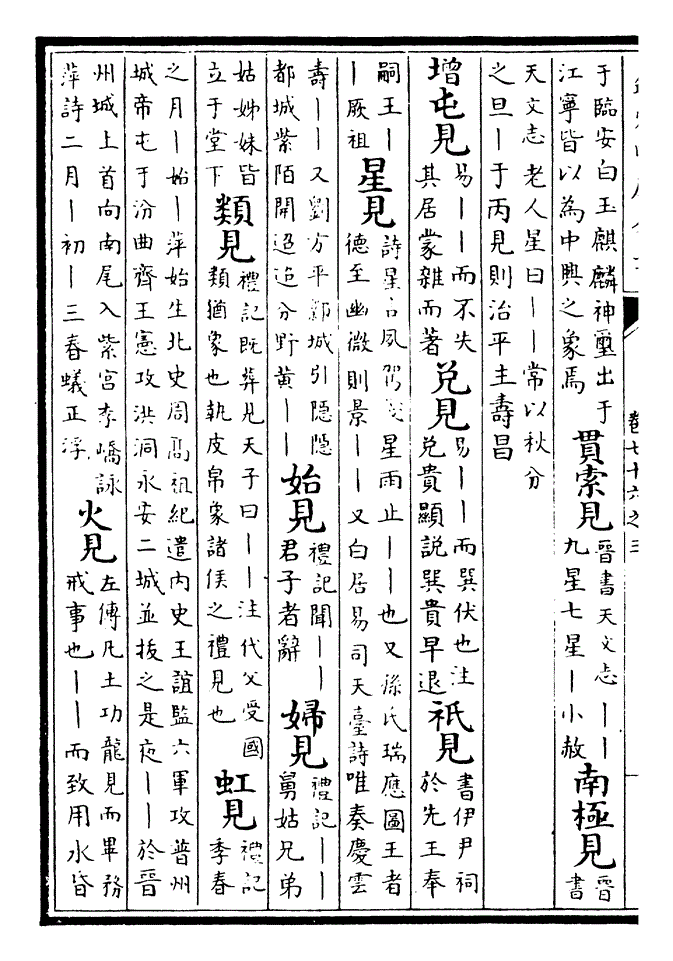 于臨安白玉麒麟神璽出于
江寧皆以為中興之象焉
貫索見
晉書天文志｜｜
九星七星｜小赦
南極見
晉
書
天文志老人星曰｜｜常以秋分
之旦｜于丙見則治平主壽昌
增屯見
易｜｜而不失
其居蒙雜而著
兌見
易｜｜而巽伏也注
兌貴顯説巽貴早退
祇見
書伊尹祠
於先王奉
嗣王｜
｜厥祖
星見
詩星言夙駕 星雨止｜｜也又孫氏瑞應圖王者
德至幽微則景｜｜又白居易司天臺詩唯奏慶雲
壽｜｜又劉方平鄴城引隱隱
都城紫陌開迢迢分野黄｜｜
始見
禮記聞｜｜
君子者辭
婦見
禮記｜｜
舅姑兄弟
姑姊妹皆
立于堂下
類見
禮記既葬見天子曰｜｜注代父受國
類猶象也執皮帛象諸侯之禮見也
虹見
禮記
季春
之月｜始｜萍始生北史周高祖紀遣内史王誼監六軍攻普州
城帝屯于汾曲齊王憲攻洪洞永安二城並拔之是夜｜｜於晉
州城上首向南尾入紫宫李嶠詠
萍詩二月｜初｜三春蟻正浮
火見
左傳凡土功龍見而畢務
戒事也｜｜而致用水昏
卷七十六之三